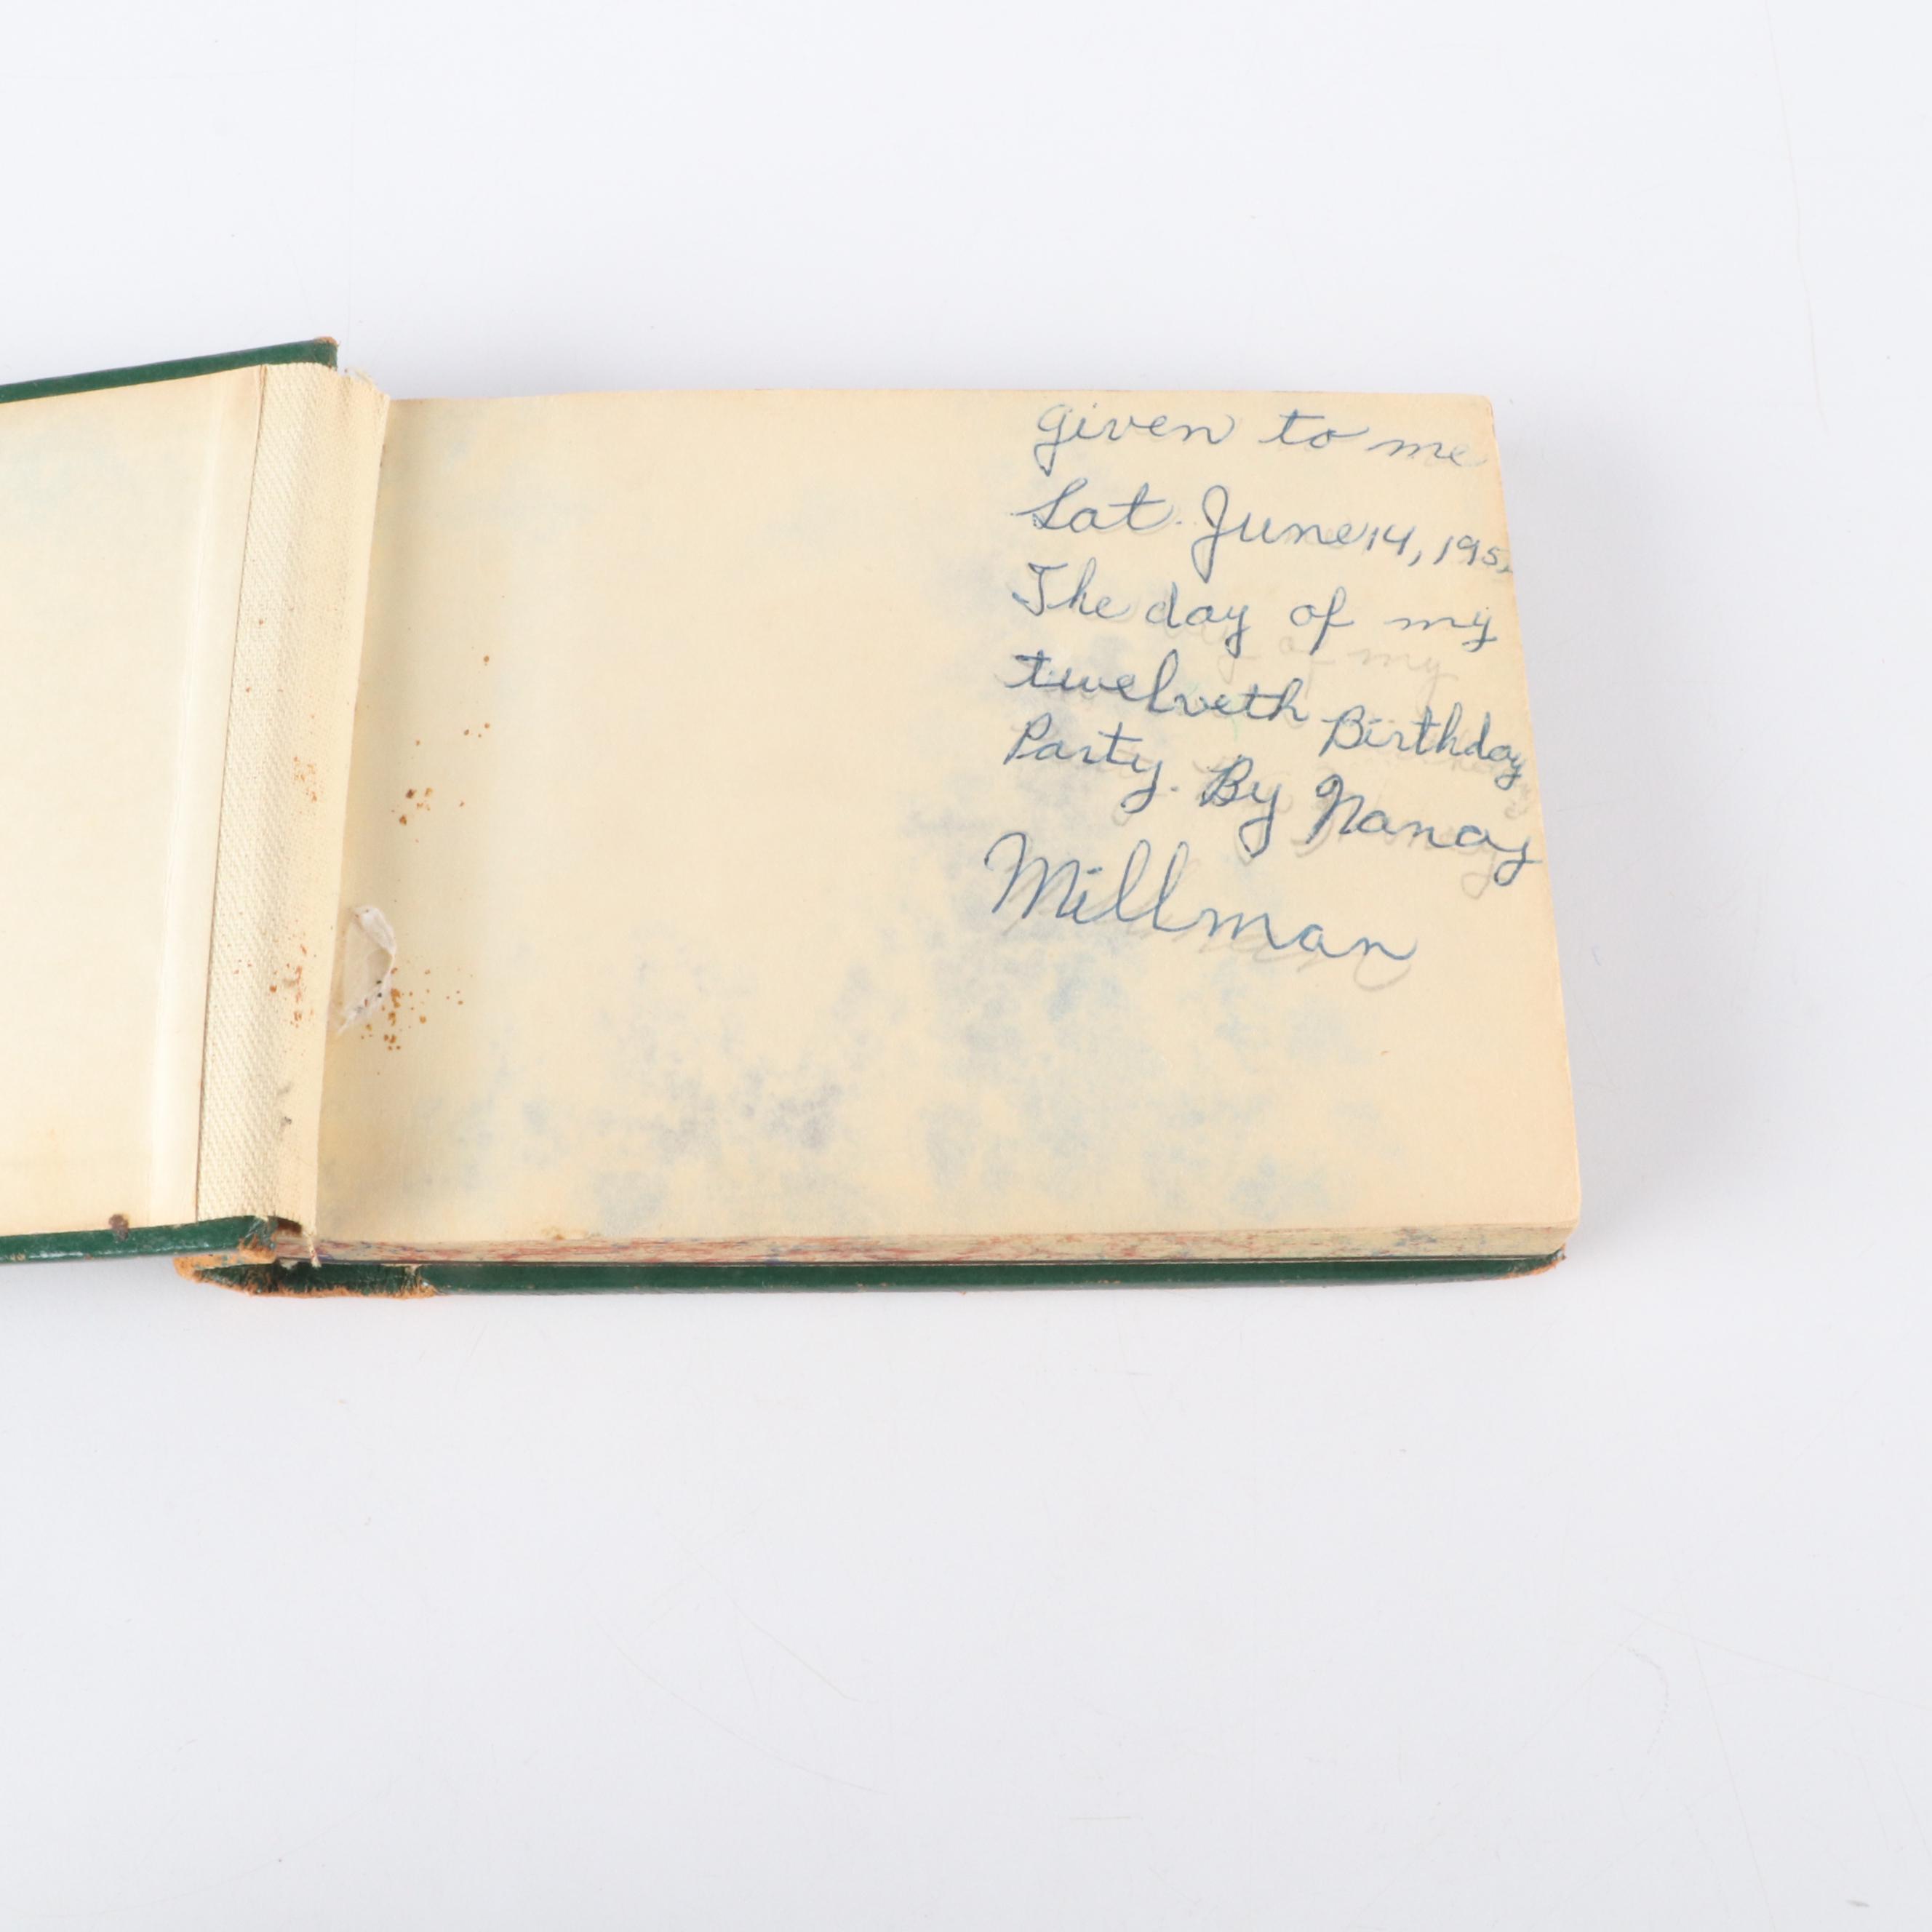 given to me
Sat. June 14, 195
The day of my
twelveth Birthday
Party. By Nancy
Millman